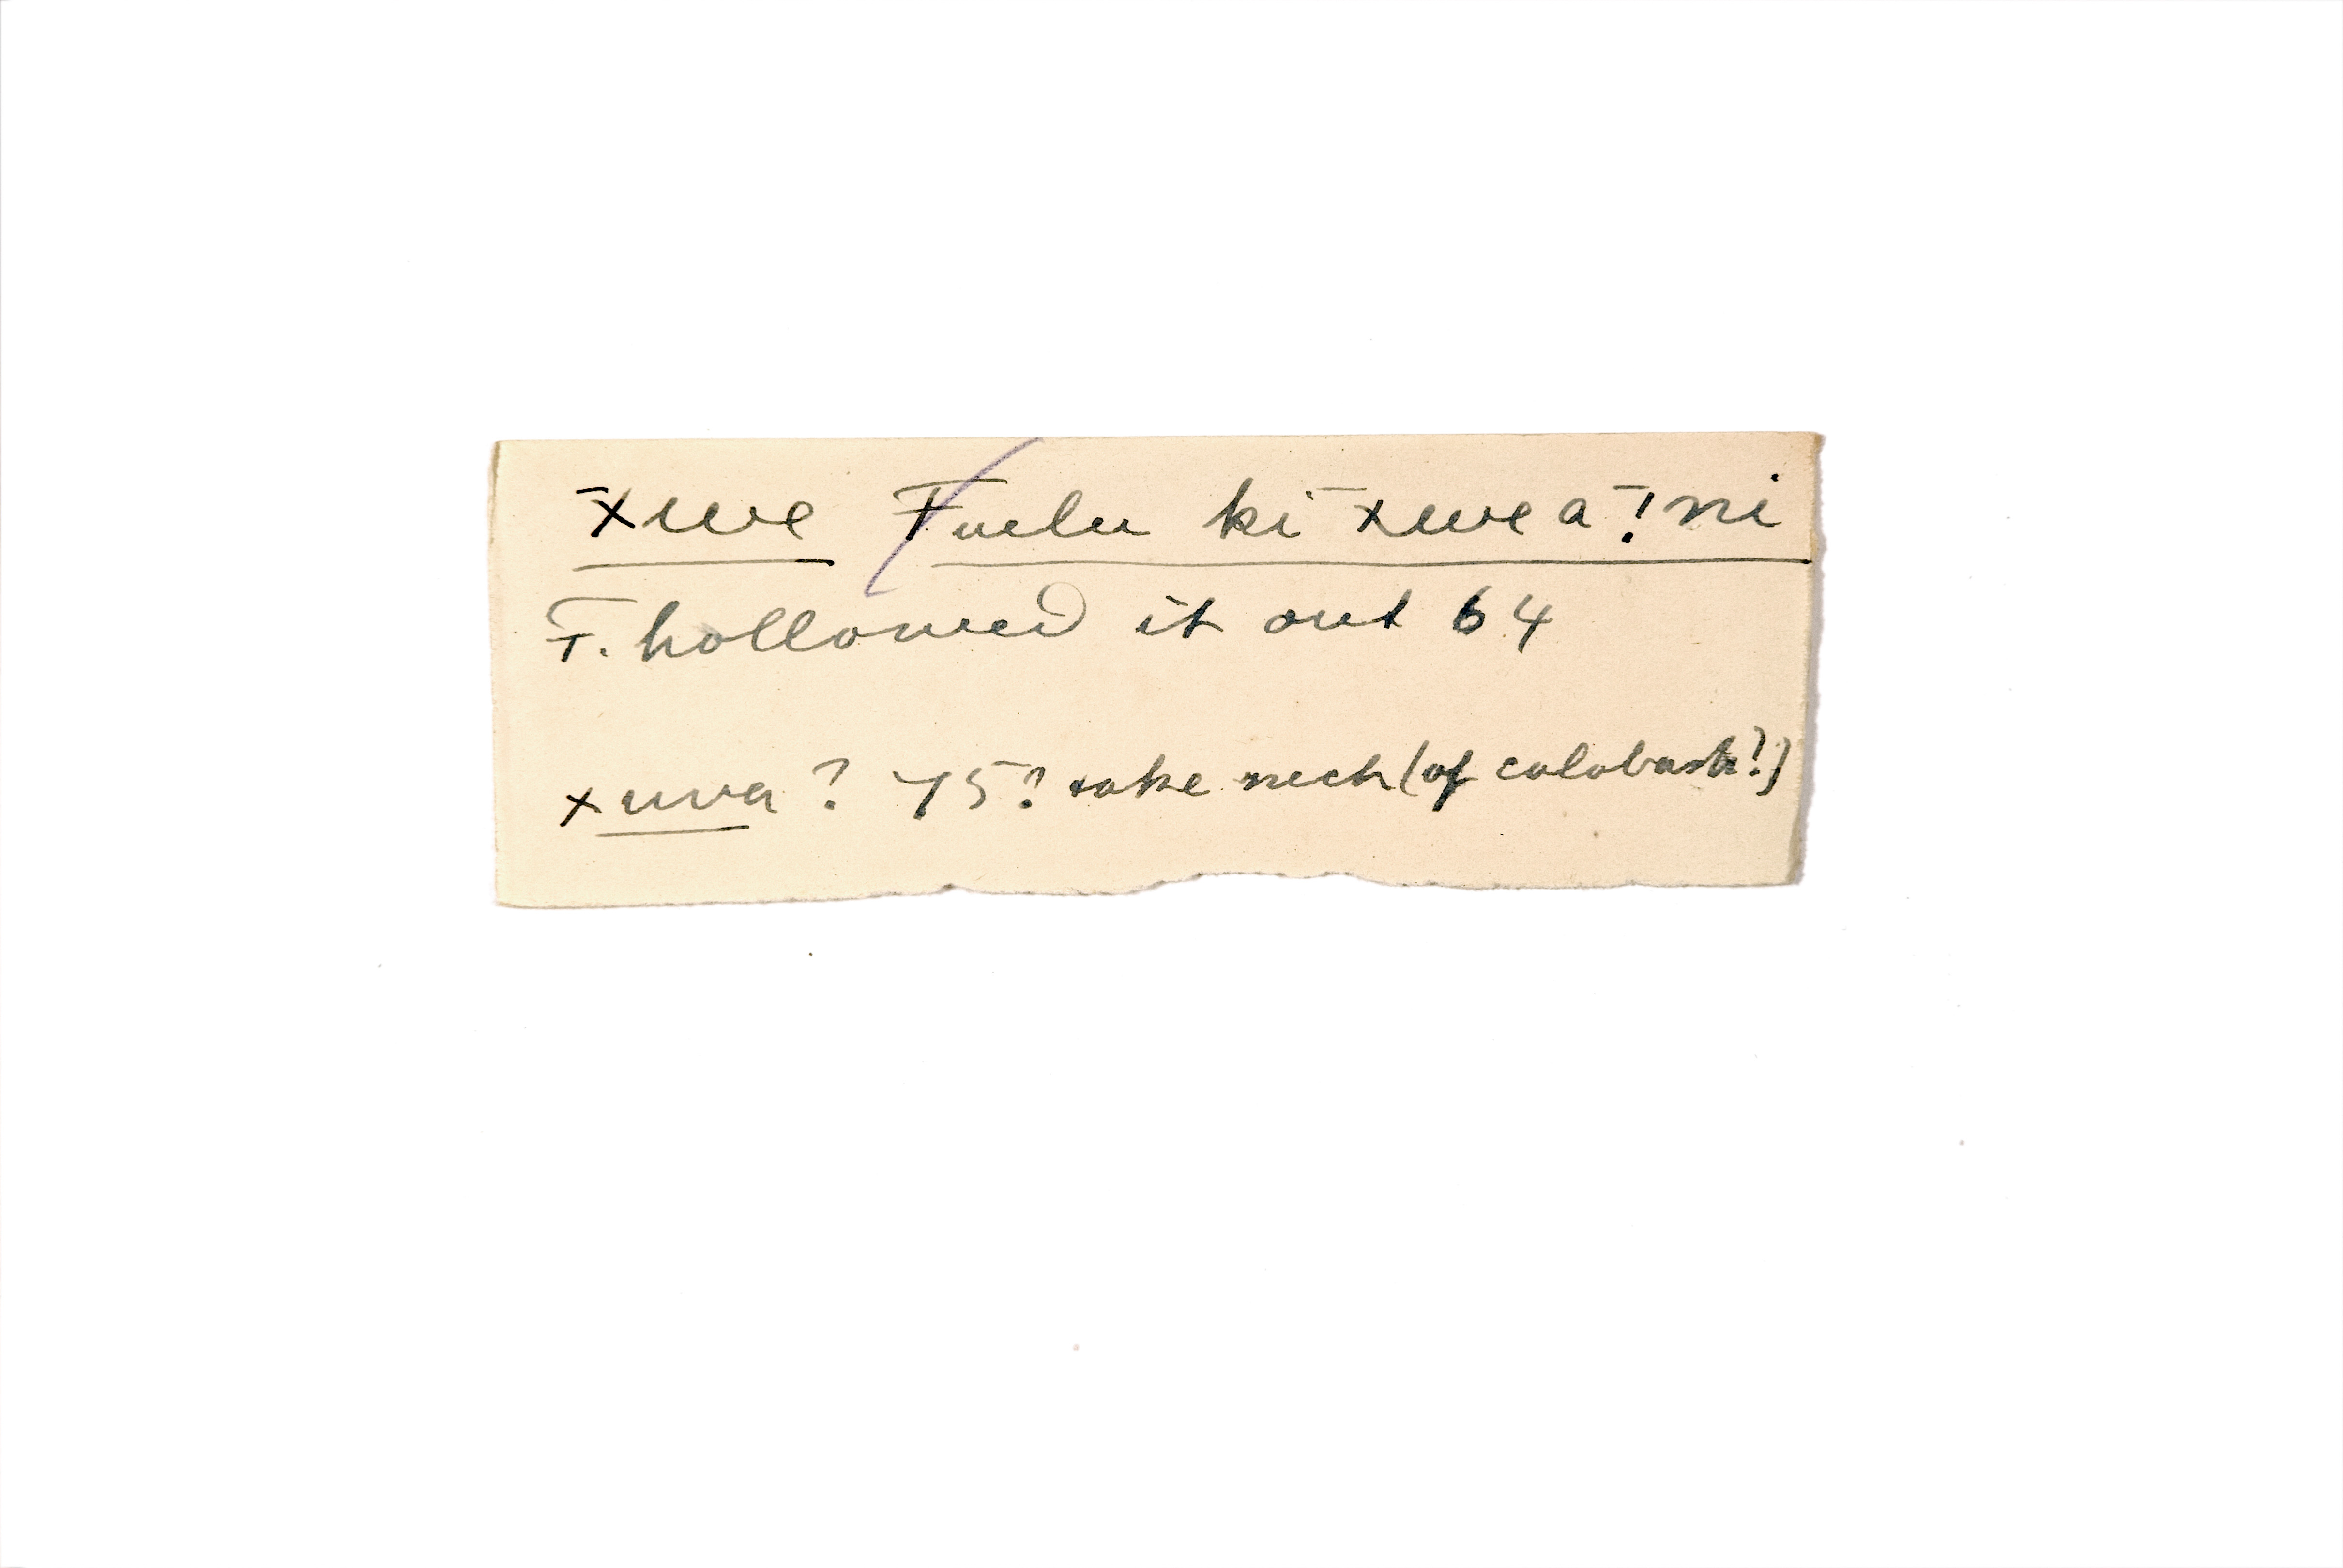 x̄uve T̄uelu ki x̄uve a ! ni
T̄. hollowed it out 64
xuva ? 75? take neck (of calabash?)